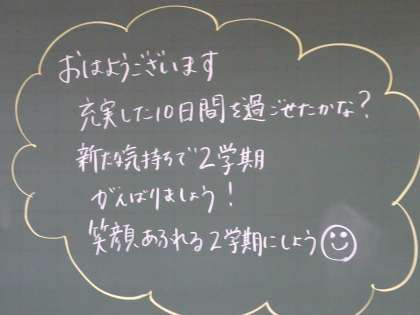 おはようございます
充実した10日間を過ごせたかな?
新たな気持ちで2学期
がんばりましょう!
笑顔あふれる2学期にしよう